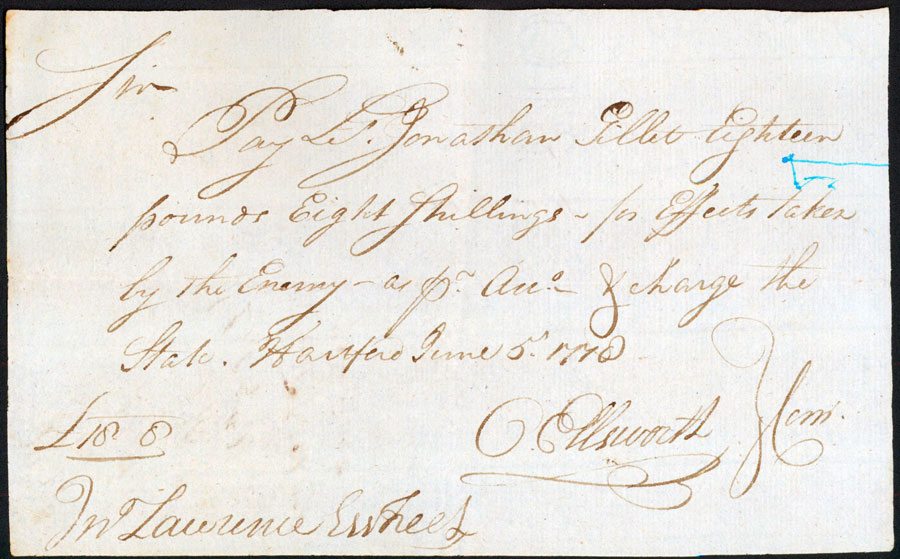 Sir
Pay Lt. Jonathan Gillet Eighteen
pounds Eight Shillings - for Effects taken
by the Enemy - as pr. Acco. - & charge the
State. Hartford June 5. 1778
£18. 8
O. Ellsworth } Com.
Jno Lawrence Esqr